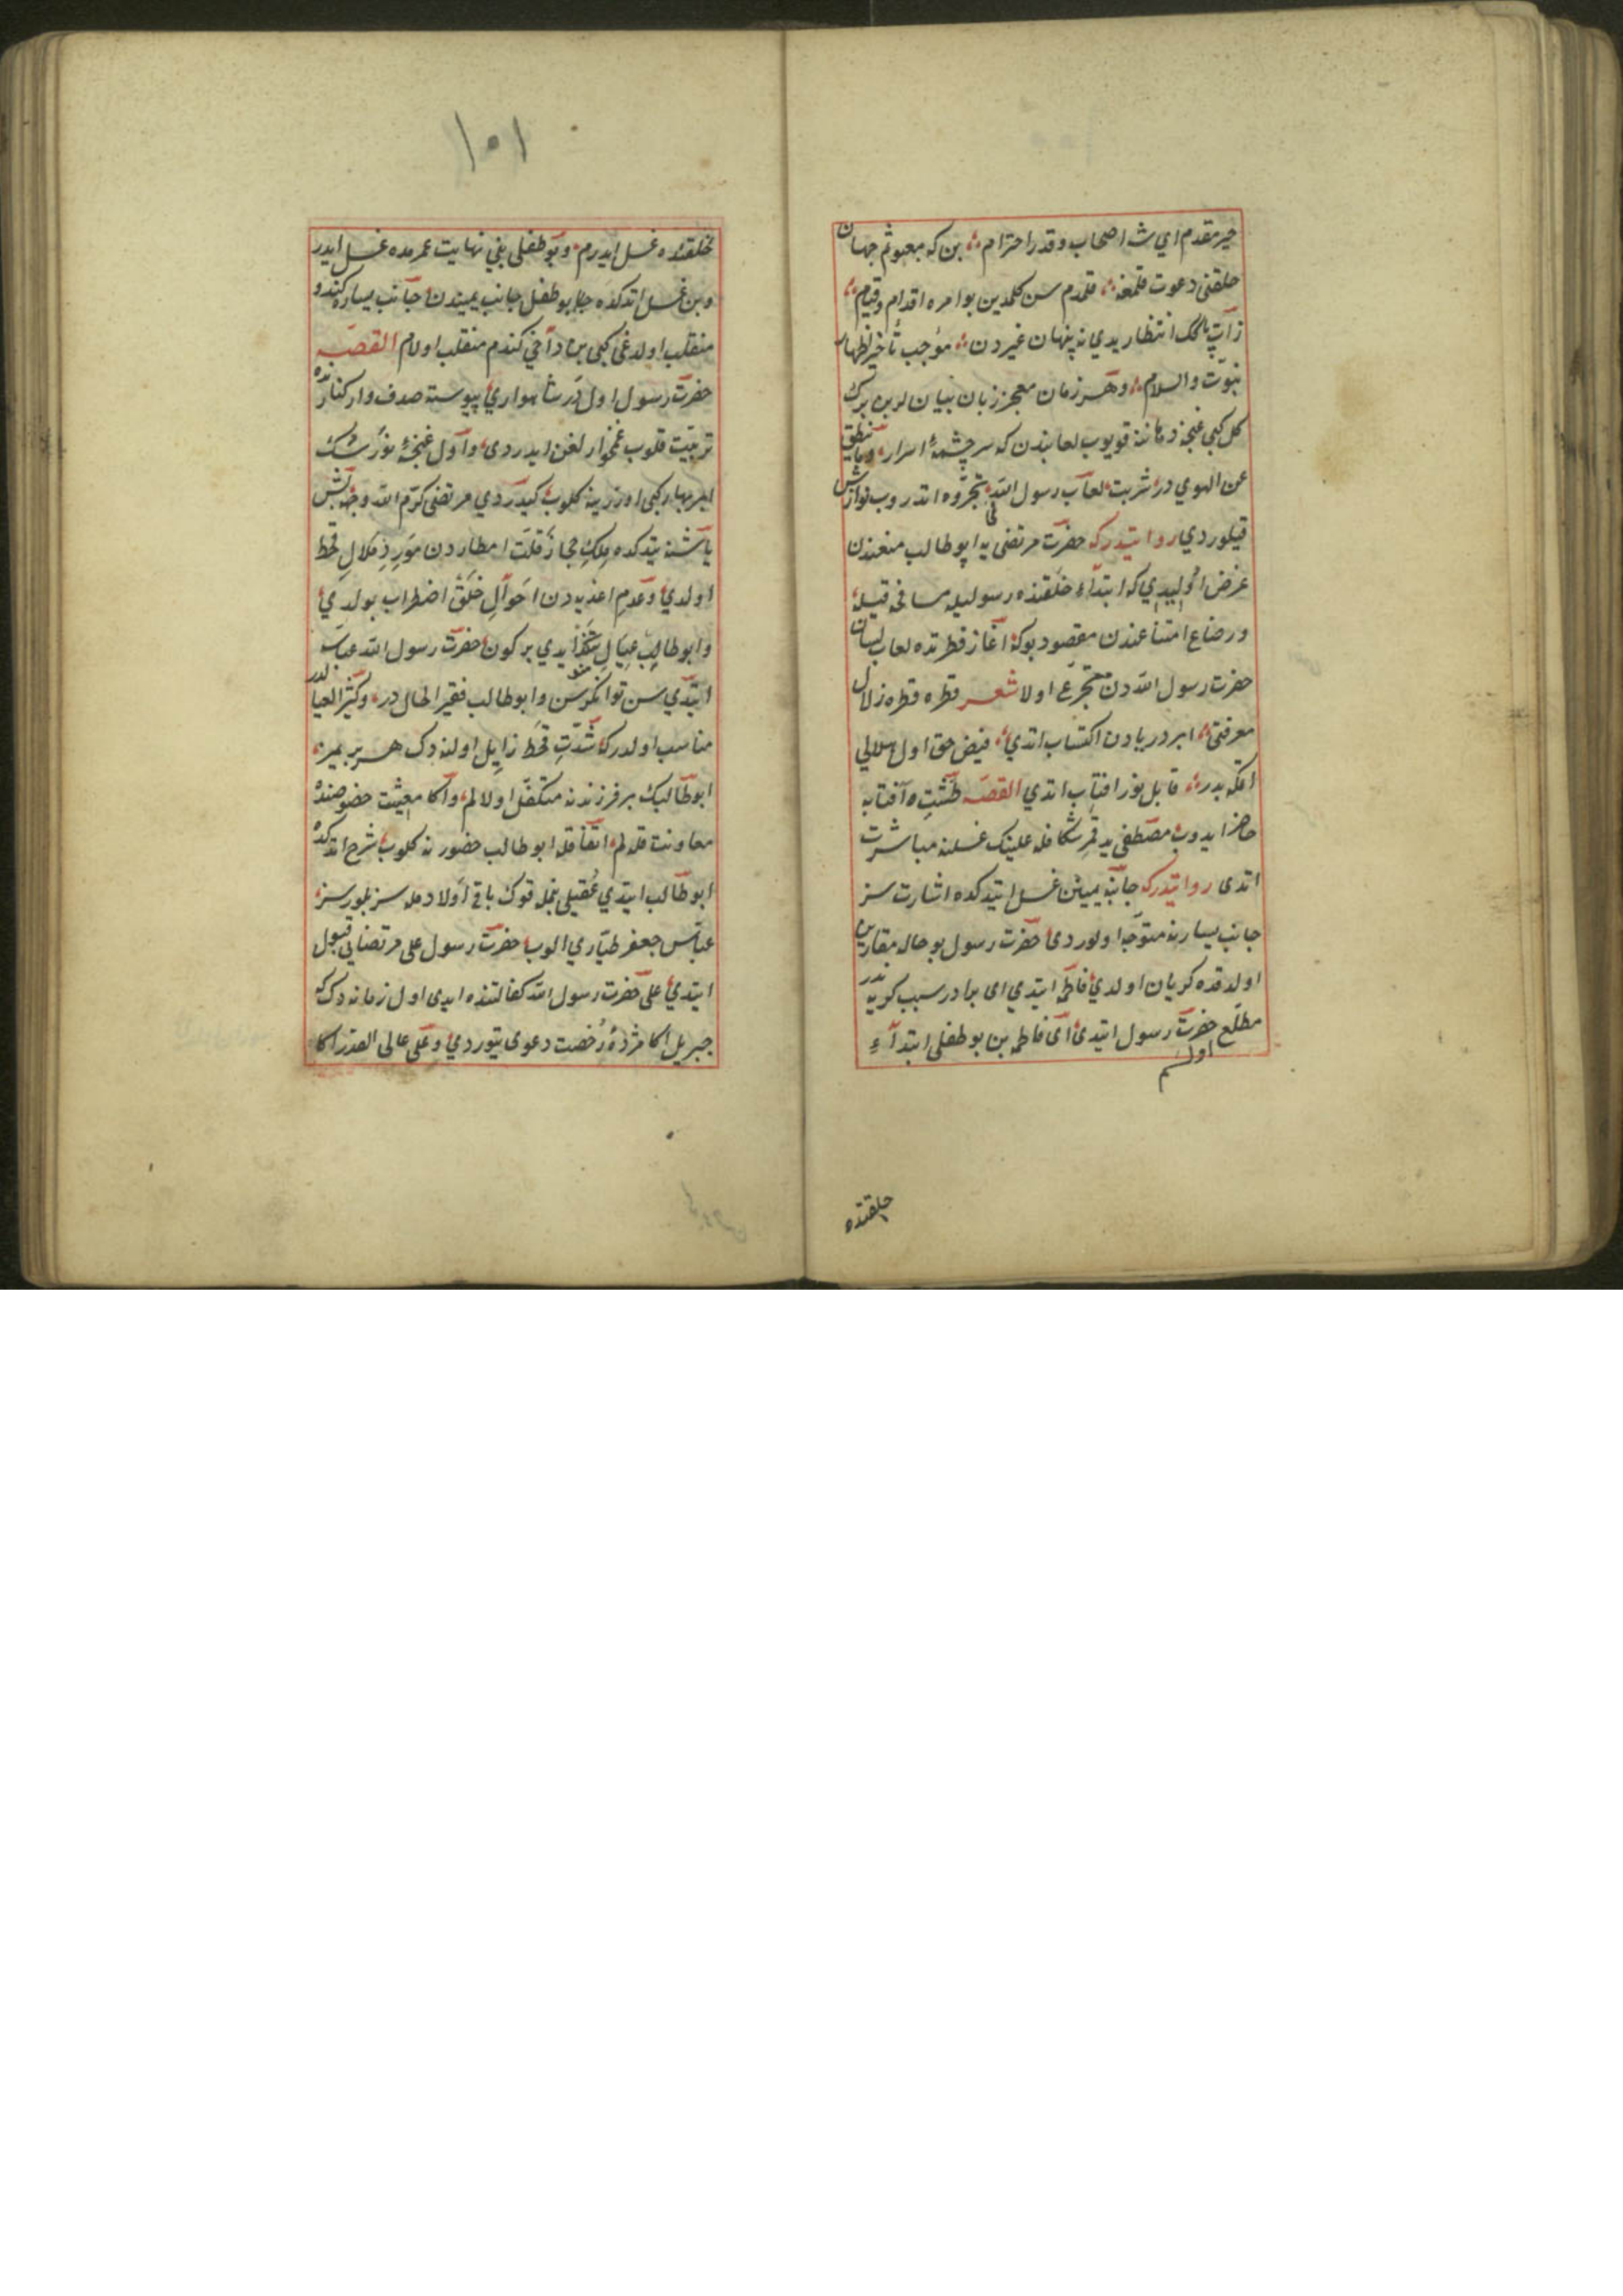 خیر مقدم ای شه اصحاب و قدر احترام بن که مبعوثم جهان
خلقنی دعوت قلمغه قلمدم سن کلمدین بو امره اقدام و قیام
انتظار یدی نه پنهان غیردن موجب تأخیر اظهار
نبوت والسلام و هر زمان معجز زبان لرین برك
کل کبی غنچه دهاننه قویوب لعابندن که سر چشمهٔ اسرار وما ینطق
عن الهوی در شربت لعاب رسول الله نوازش
قیلوردی روایتدرکه حضرت مرتضی یه ابو طالب منعندن
غرض اولیدی که ابتداء خلقنده رسولیله
و رضاع امتناعندن مقصود بوکه آغاز فطرتده لعاب لسان
حضرت رسول الله دن متجرع اولا شعر قطره قطره زلال
معرفتی ابر دریادن اکتساب اتدی فیض حق اول هلالی
اتمکه بدر قابل نور افتاب اتدی القصه طشت و آفتابه
حاضر ایدوب مصطفی ید قمر شکافله علینك غسلنه مباشرت
اتدی روایتدرکه جانب یمینن غسل ایتدکده اشارت سز
جانب یسارنه متوجه اولوردی حضرت رسول بو حاله مقارن
اولدقده کریان اولدی فاطمه ایتدی ای برادر سبب کریه ندر
حضرت رسول ایتدی ای فاطمه بن بو طفلی ابتداء
مطلع اولشم
خلقتده
١٠١
خلقتده غسل ایدرم و بو طفلی بنی نهایت عمرمده غسل ایدر
و بن غسل اتدکده بو طفل جانب یمیندن جانب یساره کندو
منقلب اولدغی کبی بن دآخی کندم منقلب اولام القصه
حضرت رسول اول در شاهواری پیوسته صدف وار کنارنده
تربیت قلوب غمخوارلغن ایدردی و اول غنچهٔ نورسك
ابر بهار کبی اوزرینه کلوب کیدردی مرتضی کرم الله وجهه بش
یاشنه یتدکده ملك حجاز قلت امطاردن مورد ملال قحط
اولدی و عدم اغذیه دن احوال خلق اضطراب بولدی
و ابو طالب عیال ایدی بر کون حضرت رسول الله عباسه
ایتدی سن توانکرسن و ابو طالب فقیر الحال در و کثیر العیالدر
مناسب اولدرکه شدت قحط زایل اولنه دك هر بریمز
ابو طالبك بر فرزندنه متکفل اولالم و اکا معیشت خصوصنده
معاونت قلالم اتفاقله ابو طالب حضورنه کلوب شرح اتدکده
ابو طالب ایتدی عقیلی بنمله قوك باقی اولادمله سز بلورسز
عباس جعفر طیاری الوب حضرت رسول علی مرتضایی قبول
ایتدی علی حضرت رسول الله کفالتنده ایدی اول زمانه دك که
جبریل اکا مژدهٔ رخصت دعوی یتوردی و علی عالی القدر اکا